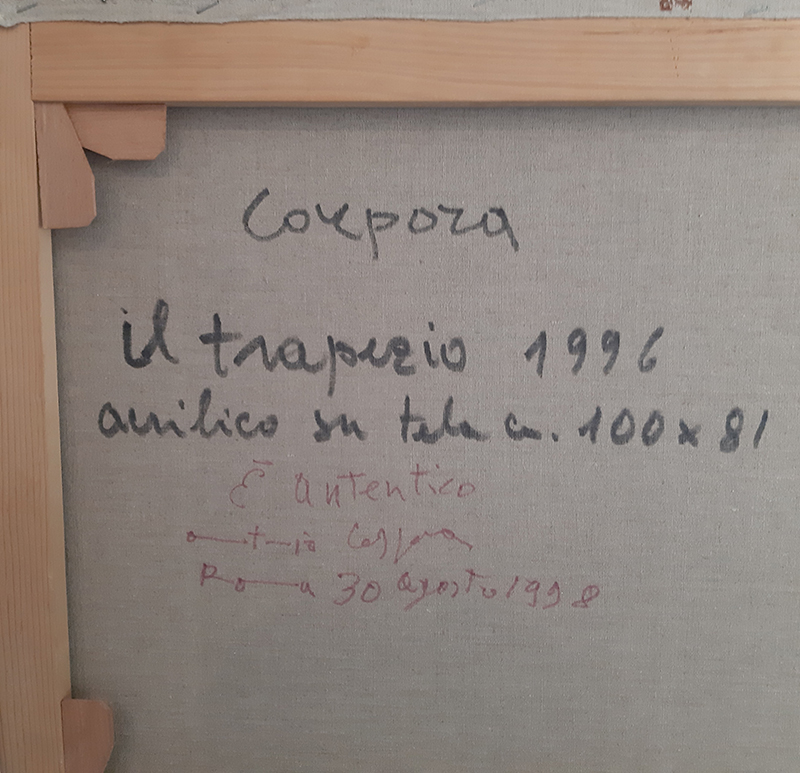 Corpora
il trapezio 1996
acrilico su tela cm. 100 x 81
È autentico
Corpora
Roma 30 agosto 1998